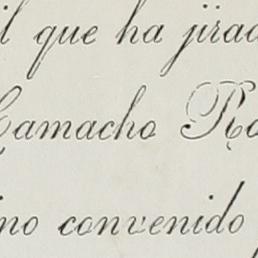 il que ha jirad
Camacho Ro
ino convenido